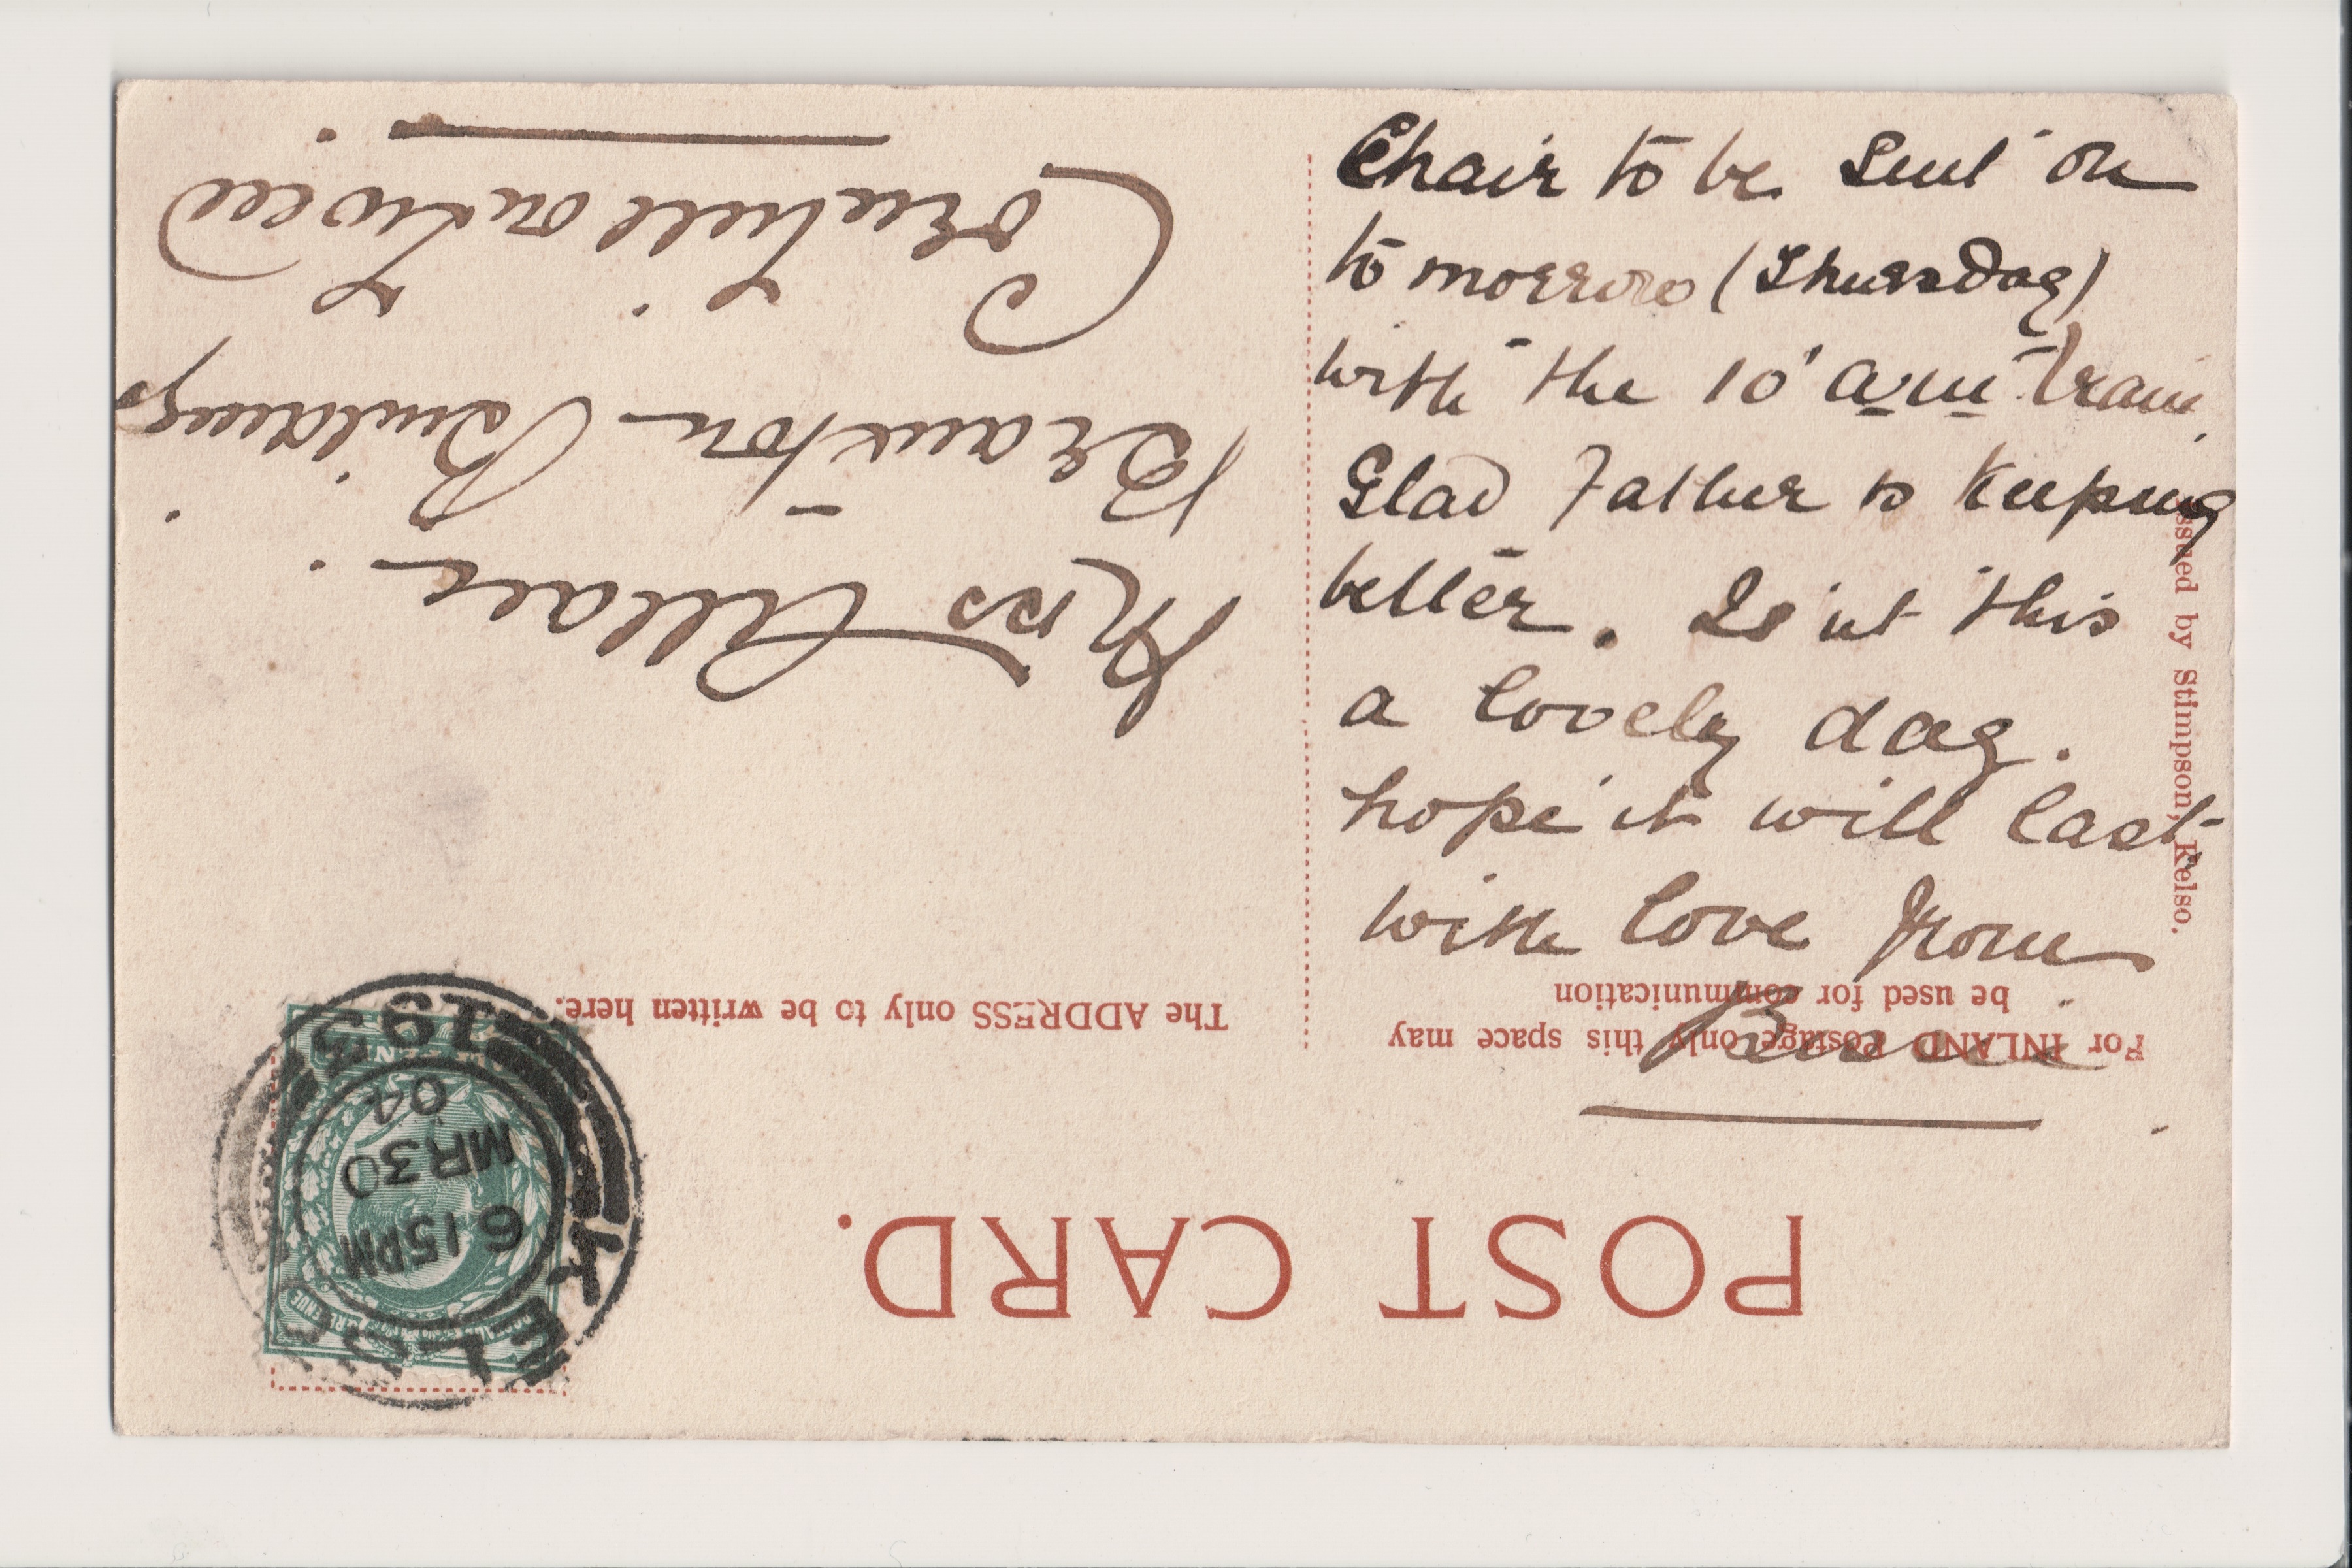 Chair to be sent on
to morrow (Thursday)
with the 10 a.m train.
Glad Father is keeping
better. Is'nt this
a lovely day.
hope it will last,
with love from
POST CARD.
For INLAND Postage only this space may
be used for communication
The ADDRESS only to be written here.
Miss Allan.
Buildings
Cornhill on Tweed.
Issued by Stimpson, Kelso.
6 15PM
MR 30
04
193